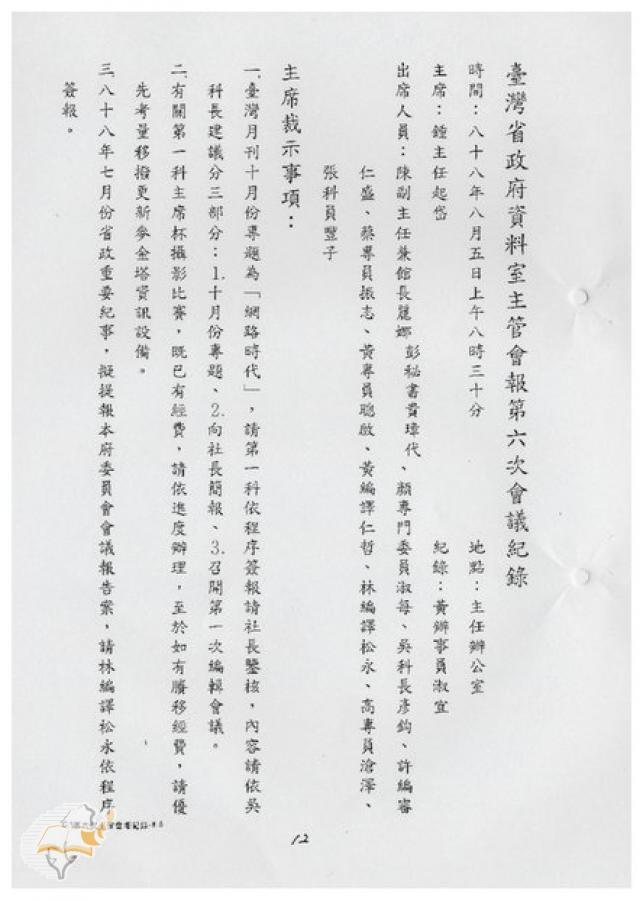 臺灣省政府資料室主管會報第六次會議紀錄
時間：八十八年八月五日上午八時三十分　地點：主任辦公室
主席：鍾主任起岱　紀錄：黃辦事員淑宜
出席人員：陳副主任兼館長麗娜　彭秘書貴璋代、顏專門委員淑每、吳科長彥鈞、許編審
仁盛、蔡專員振志、黃專員聰啟、黃編譯仁哲、林編譯松永、高專員滄澤、
張科員豐子
主席裁示事項：
一、臺灣月刊十月份專題為「網路時代」，請第一科依程序簽報請社長鑒核，內容請依吳
科長建議分三部分：1.十月份專題、2.向社長簡報、3.召開第一次編輯會議。
二、有關第一科主席杯攝影比賽，既已有經費，請依進度辦理，至於如有賸移經費，請優
先考量移撥更新麥金塔資訊設備。
三、八十八年七月份省政重要紀事，擬提報本府委員會會議報告案，請林編譯松永依程序
簽報。
12